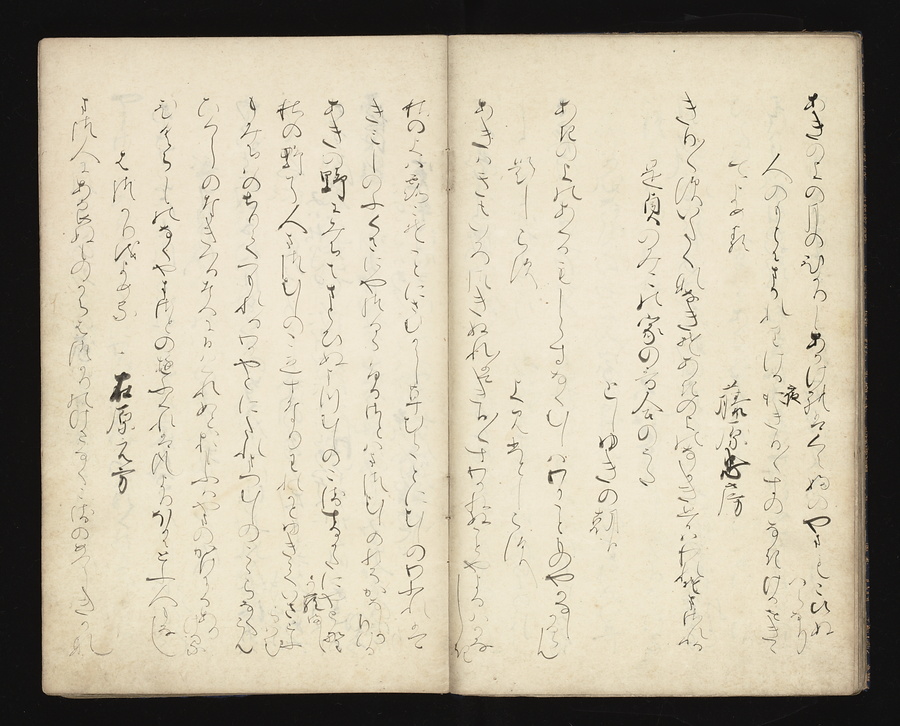 あきのよの月のひかりしあかけれはくらふのやまもこえぬへらなり
人のもとにまかれりける夜きり／＼すのなきけるをきゝて
よめる　藤原忠房
きり／＼すいたくなゝきそあきのよのなかきおもひはわれそまされる
是貞のみこの家の哥合のうた
としゆきの朝臣
あきのよのあくるもしらすなくむしはわかことものやかなしかるらん
題しらす　よみ人しらす
あきはきもいろつきぬれはきり／＼すわかねぬことやよるはかなしき
秋のよは露こそことにさむからし草むらことにむしのわふれは
きみしのふくさにやつるゝふるさとはまつむしのねそかなしかりける
あきの野にみちもまとひぬまつむしのこゑするかたにやとやからまし
秋の野に人まつむしのこゑすなりわれかとゆきていさとふらはむ
もみちはのちりてつもれるわかやとにたれをまつむしこゝらなくらん
ひくらしのなきつるなへに日はくれぬとおもふはやまのかけにそありける
ひくらしのなくやまさとの夕くれはかせよりほかにとふ人もなし
はつかりをよめる　在原元方
まつ人にあらぬものからはつかりのけさなくこゑのめつらしきかな